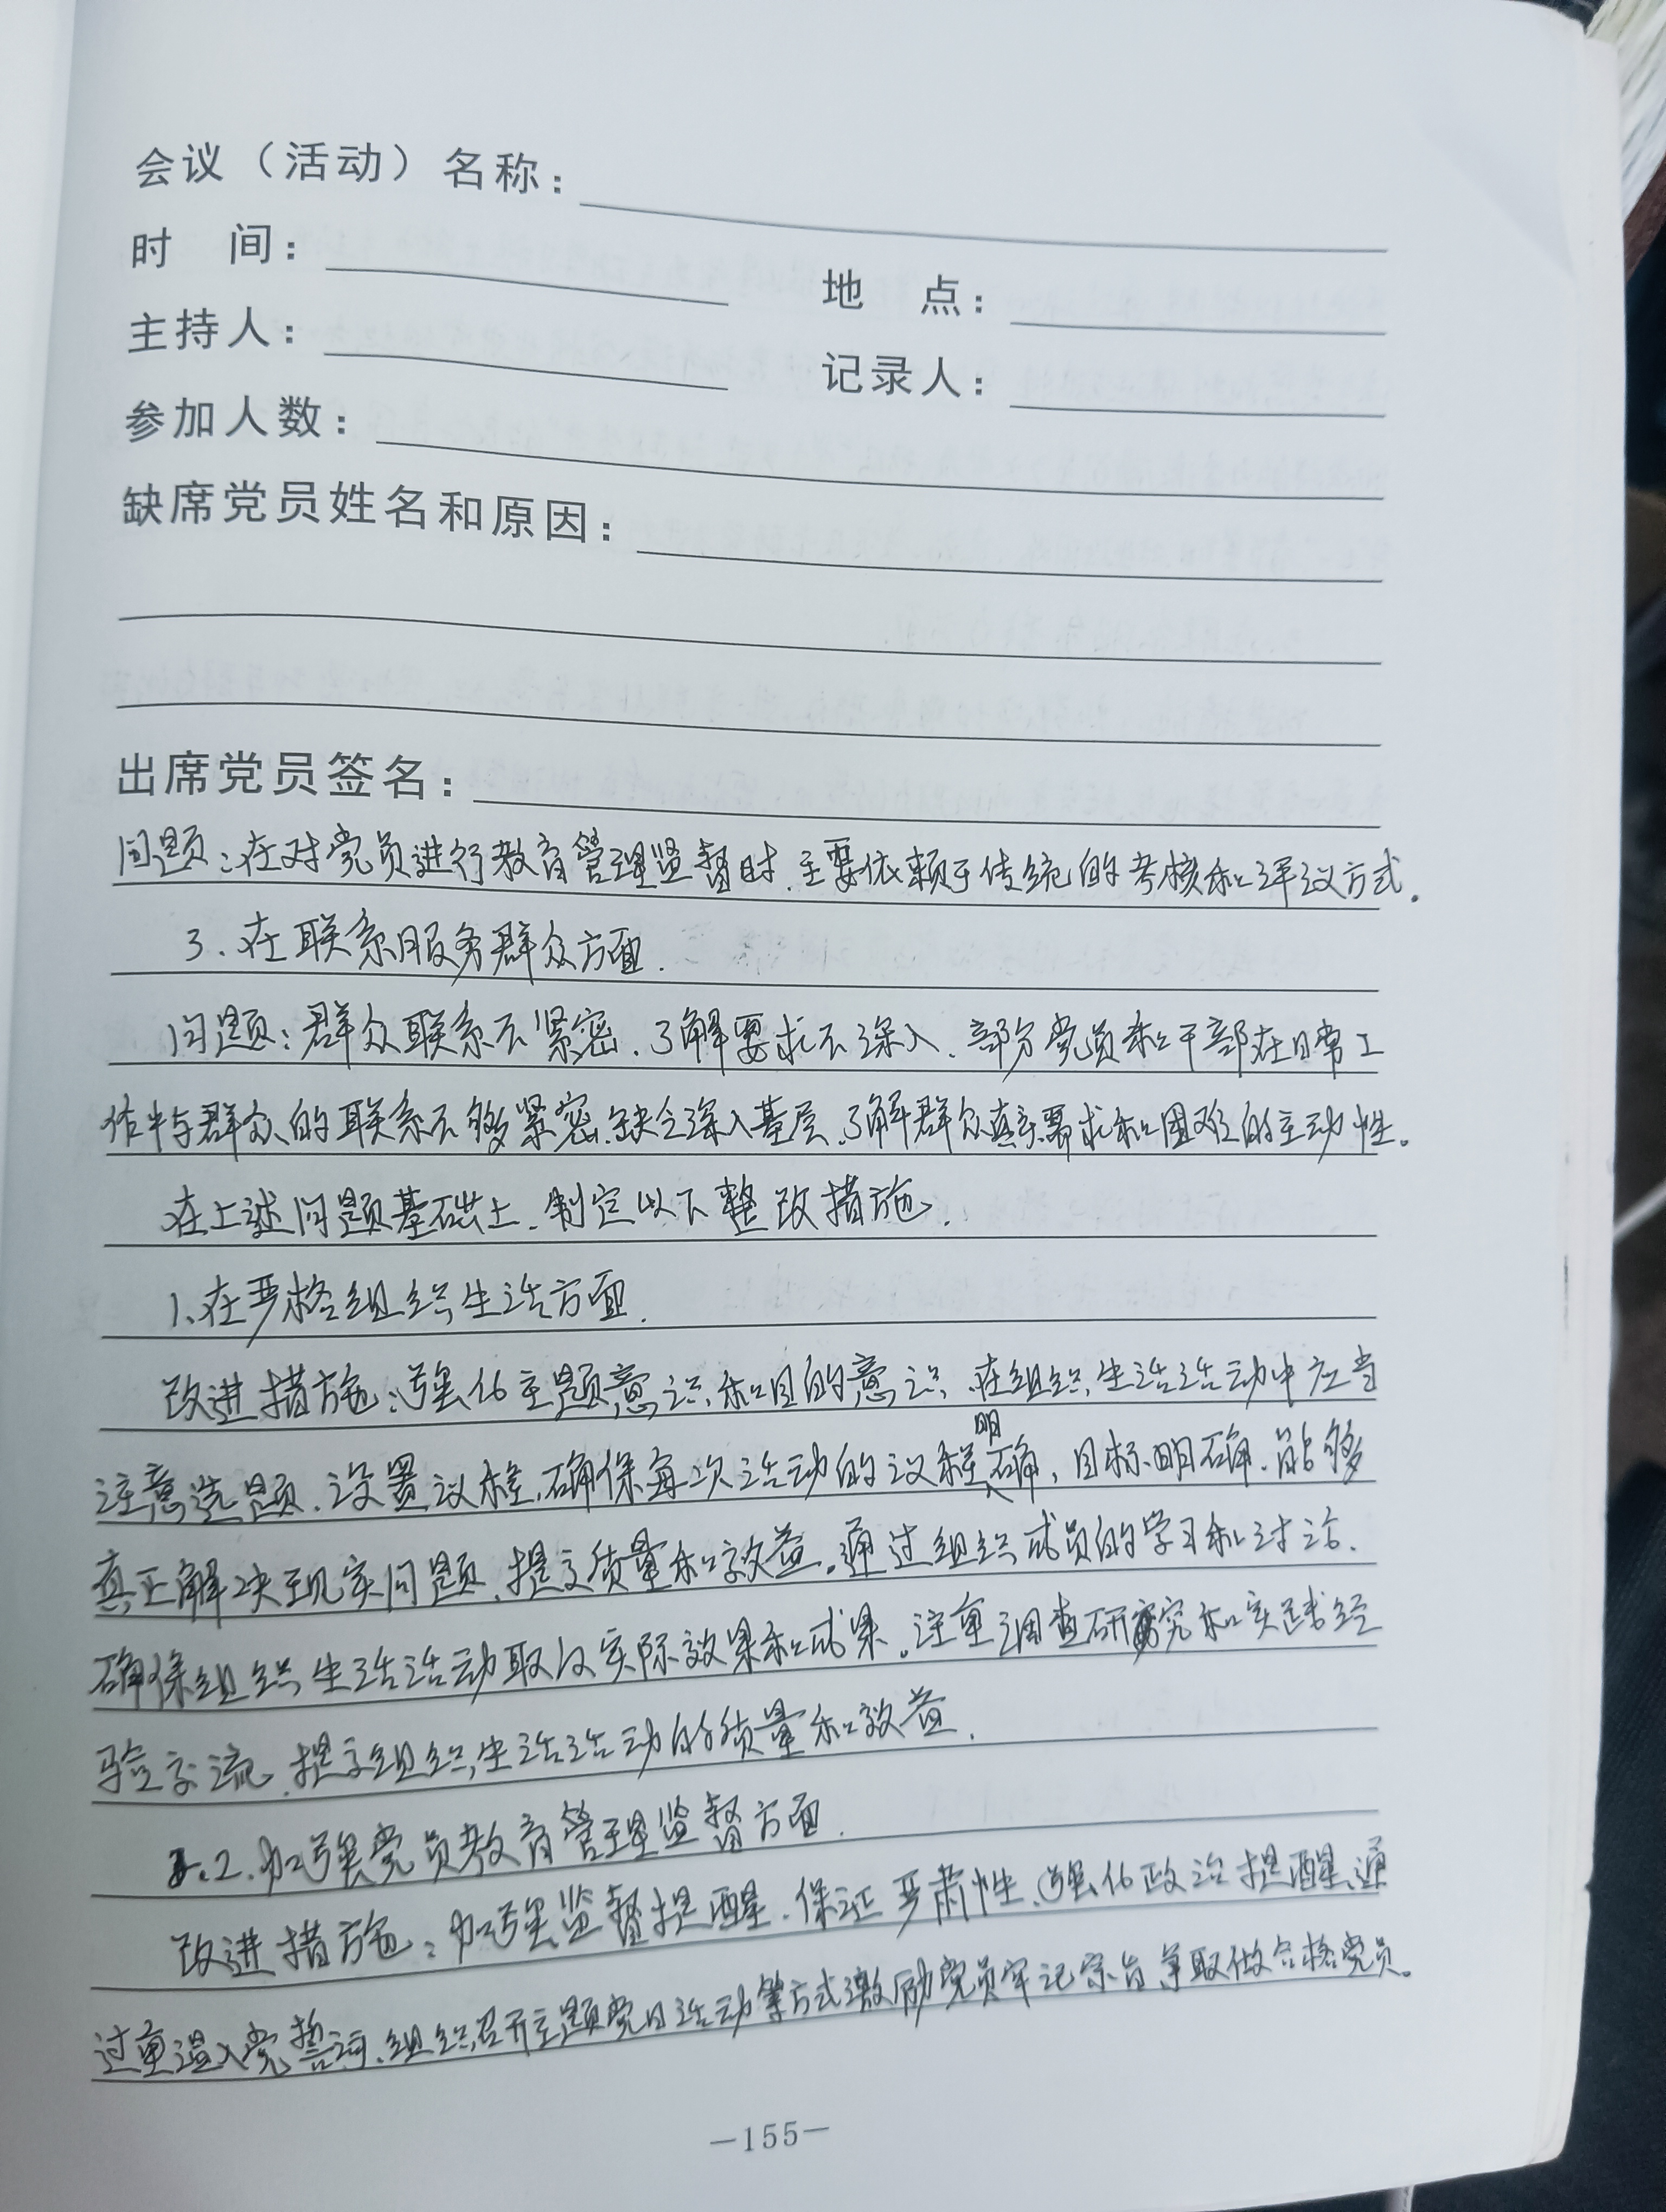 会议（活动）名称：
时　间：　　　　地　点：
主持人：　　　　记录人：
参加人数：
缺席党员姓名和原因：
出席党员签名：
问题：在对党员进行教育管理监督时，主要依赖于传统的考核和评议方式。
3、在联系服务群众方面.
问题：群众联系不紧密，了解要求不深入，部分党员和干部在日常工
作中与群众的联系不够紧密，缺乏深入基层，了解群众真实需求和困难的主动性。
在上述问题基础上，制定以下整改措施.
1、在严格组织生活方面.
改进措施：强化主题意识和目的意识，在组织生活活动中应当
注意选题，设置议程，确保每次活动的议程明确，目标明确，能够
真正解决现实问题，提高质量和效益。通过组织成员的学习和讨论，
确保组织生活活动取得实际效果和成果。注重调查研究和实践经
验交流，提高组织生活活动的质量和效益.
2.加强党员教育管理监督方面.
改进措施：加强监督提醒，保证严肃性，强化政治提醒，通
过重温入党誓词，组织召开主题党日活动等方式激励党员牢记宗旨争取做合格党员。
—155—